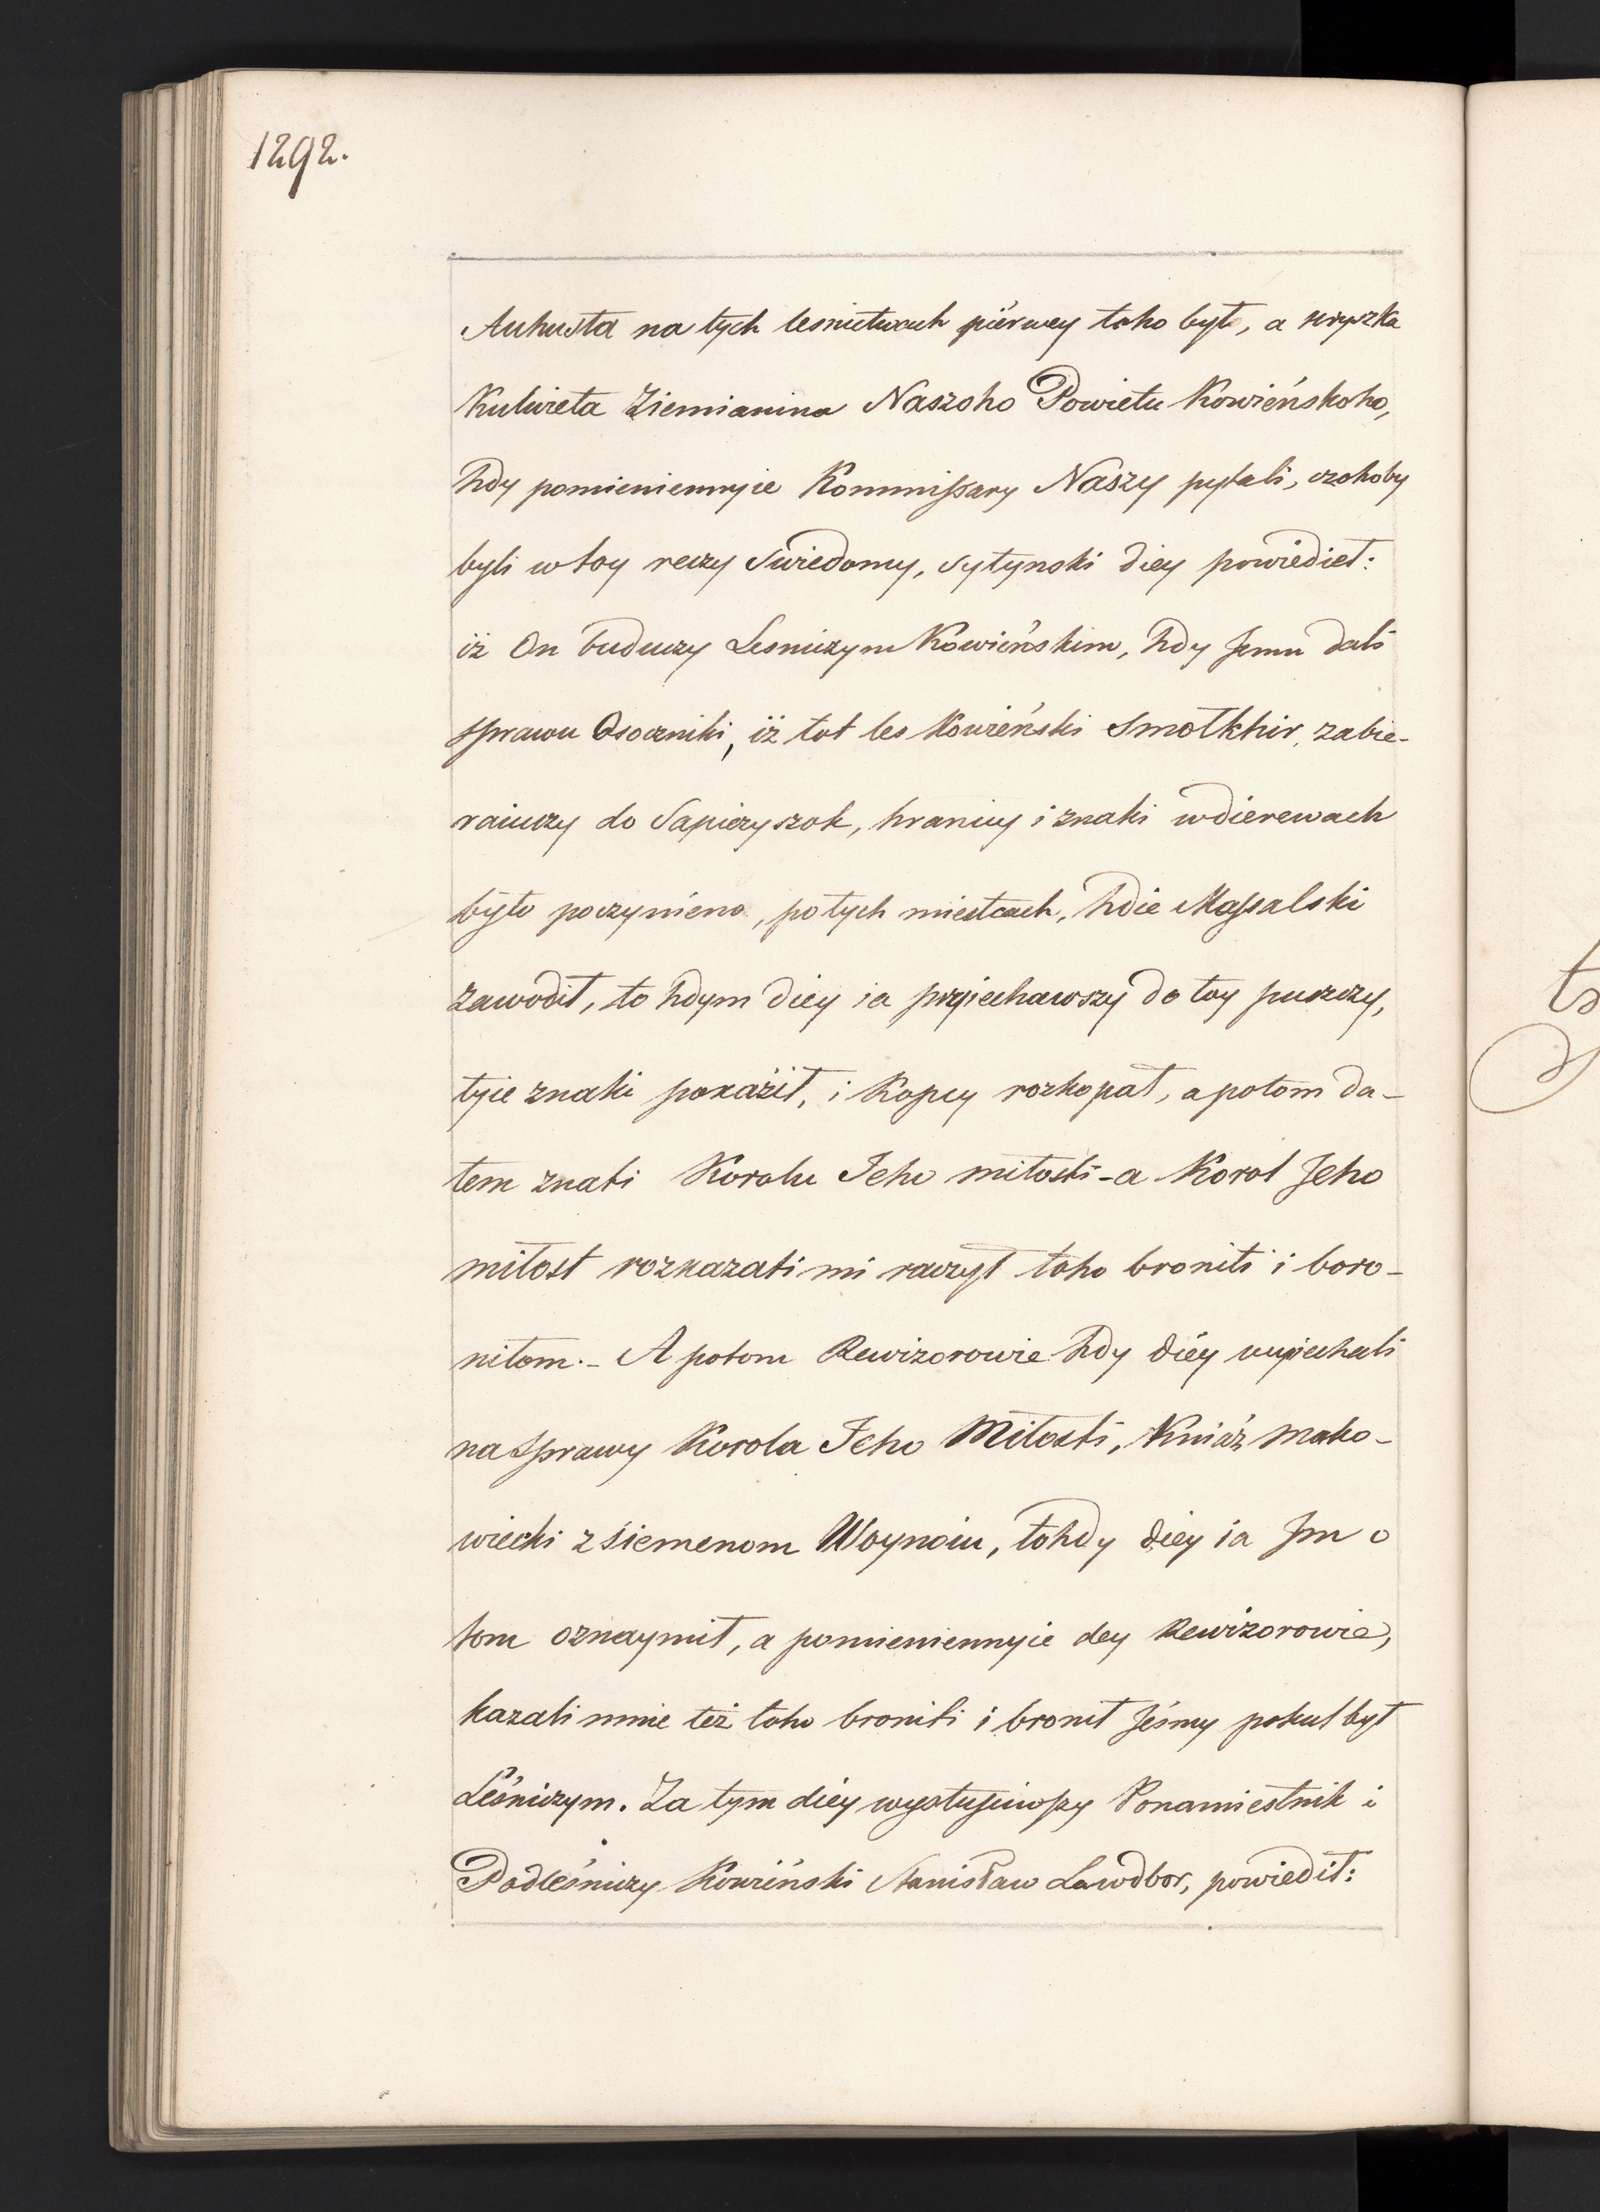 1292.
Auhusta na tych lesnictwach pierwey toho był, a hryszka
Kulwieta Ziemianina Naszoho Powietu Kowieńskoho,
hdy pomieniennyie Kommissary Naszy pytali, czohoby
byli w toy reczy swiedomy, Sytynski diey powiedieł:
iż On buduczy Lesniczym Kowieńskim, hdy Jemu dali
sprawu Osoczniki, iż tot les Kowieński Smołkhir, zabie-
raiuczy do Sapieżyszok, hranicy i znaki w dierewach
było poczynieno, po tych miestcach, hdie Massalski
zawodił, to hdym diey ia pryiechawszy do toy puszczy,
tyie znaki pokaził, i Kopcy rozkopał, a potom da-
łem znati Korolu Jeho miłosti - a Korol Jeho
miłost rozkazati mi raczył toho broniti i boro-
niłom. - A potom Rewizorowie hdy diey wyiechali
na sprawy Korola Jeho Miłosti, Kniaź Mako-
wiecki z siemenom Woynoiu, tohdy diey ia Jm o
tom oznaymił, a pomieniennyie dey Rewizorowie,
kazali mnie też toho broniti i bronił Jeśmy pokul był
Leśniczym. Za tym diey wystupiwszy Ponamiestnik i
Podleśniczy Kowieński Stanisław Lawdbor, powiedił: